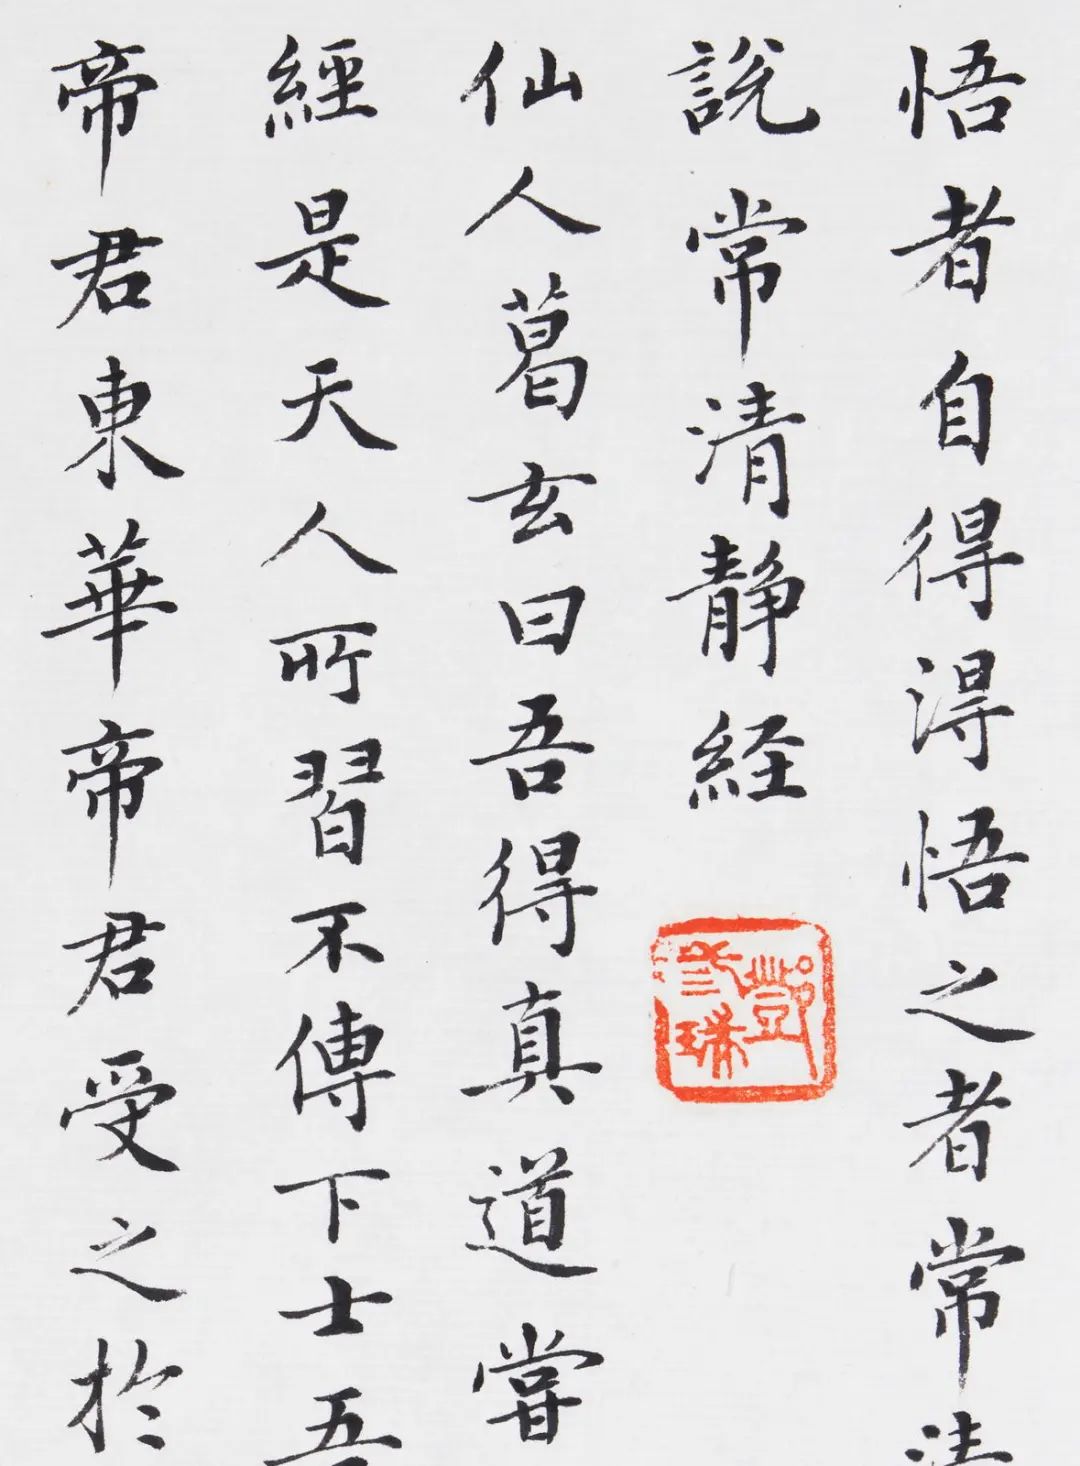 悟者自得得悟之者常清
說常清靜経
仙人葛玄曰吾得真道嘗
經是天人所習不傳下士吾
帝君東華帝君受之於